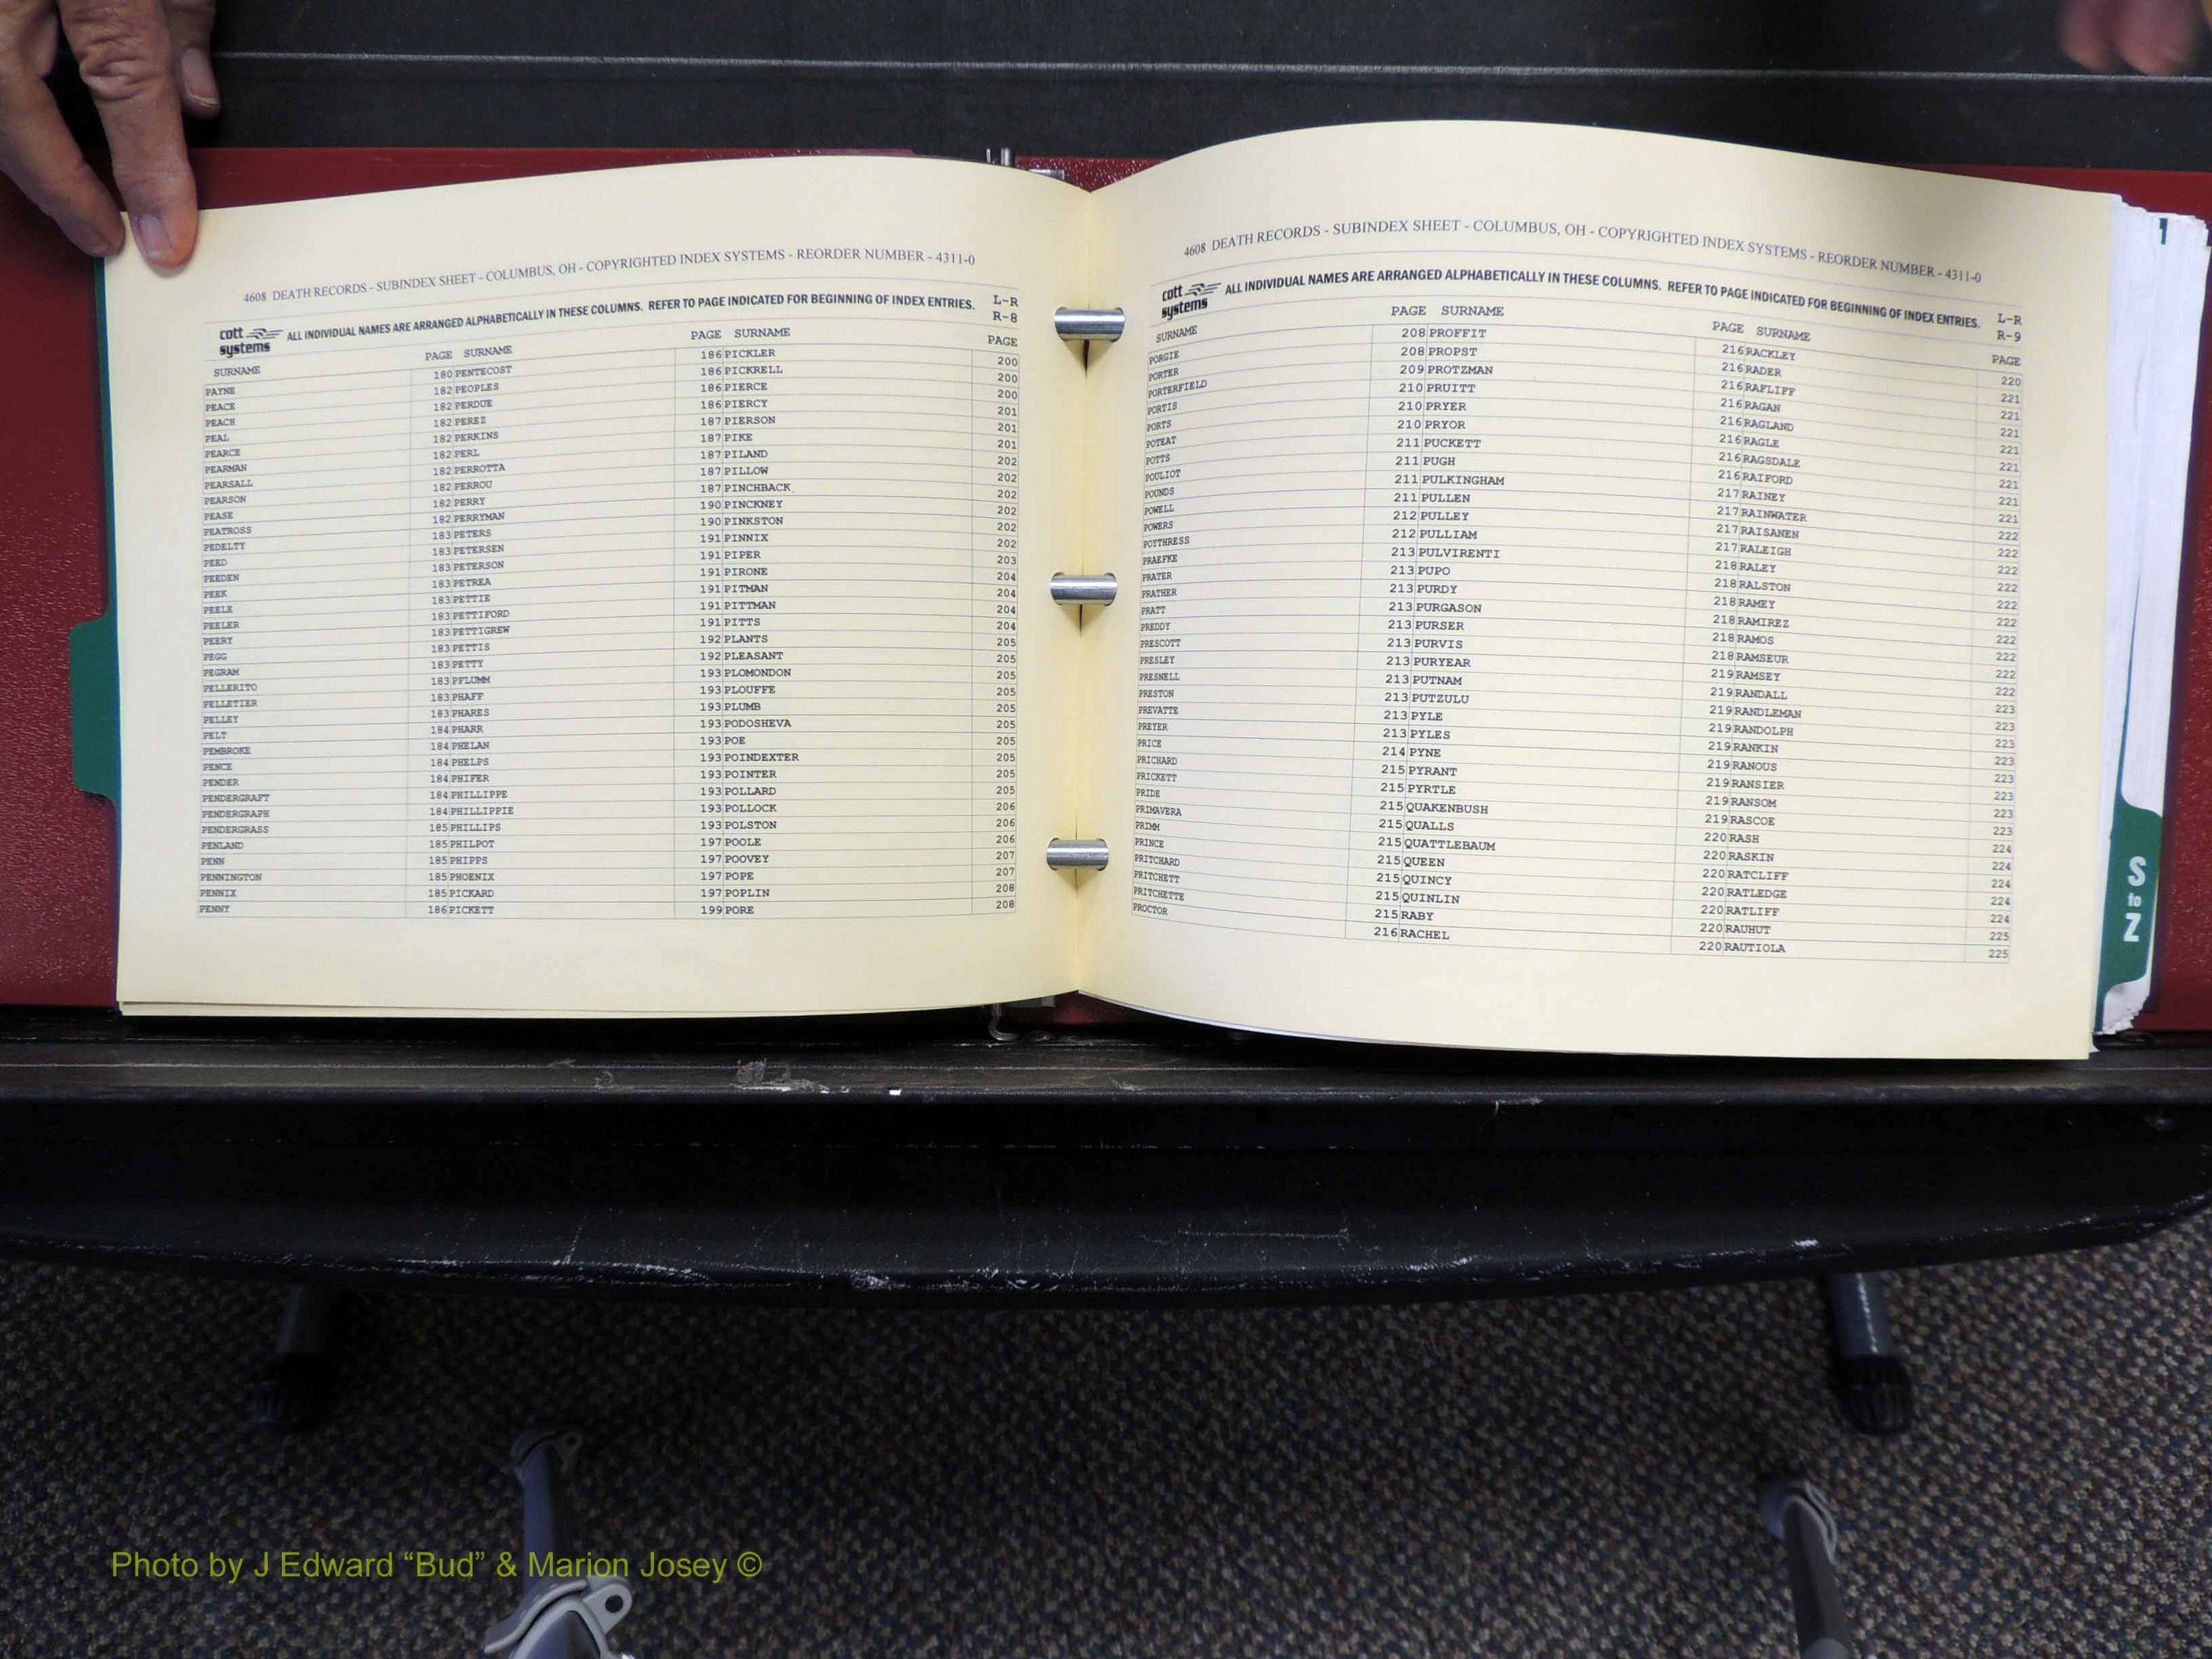 4608 DEATH RECORDS - SUBINDEX SHEET - COLUMBUS, OH - COPYRIGHTED INDEX SYSTEMS - REORDER NUMBER - 4311-0
cott systems ALL INDIVIDUAL NAMES ARE ARRANGED ALPHABETICALLY IN THESE COLUMNS. REFER TO PAGE INDICATED FOR BEGINNING OF INDEX ENTRIES. L-R
R-8
SURNAME PAGE SURNAME PAGE SURNAME PAGE
PAYNE 180 PENTECOST 186 PICKLER 200
PEACE 182 PEOPLES 186 PICKRELL 200
PEACH 182 PERDUE 186 PIERCE 200
PEAL 182 PEREZ 186 PIERCY 201
PEARCE 182 PERKINS 187 PIERSON 201
PEARMAN 182 PERL 187 PIKE 201
PEARSALL 182 PERROTTA 187 PILAND 202
PEARSON 182 PERROU 187 PILLOW 202
PEASE 182 PERRY 187 PINCHBACK 202
PEATROSS 182 PERRYMAN 190 PINCKNEY 202
PEDELTY 183 PETERS 190 PINKSTON 202
PEED 183 PETERSEN 191 PINNIX 202
PEEDEN 183 PETERSON 191 PIPER 203
PEEK 183 PETREA 191 PIRONE 204
PEELE 183 PETTIE 191 PITMAN 204
PEELER 183 PETTIFORD 191 PITTMAN 204
PEERY 183 PETTIGREW 191 PITTS 204
PEGG 183 PETTIS 192 PLANTS 205
PEGRAM 183 PETTY 192 PLEASANT 205
PELLERITO 183 PFLUMM 193 PLOMONDON 205
PELLETIER 183 PHAFF 193 PLOUFFE 205
PELLEY 183 PHARES 193 PLUMB 205
PELT 184 PHARR 193 PODOSHEVA 205
PEMBROKE 184 PHELAN 193 POE 205
PENCE 184 PHELPS 193 POINDEXTER 205
PENDER 184 PHIFER 193 POINTER 205
PENDERGRAFT 184 PHILLIPPE 193 POLLARD 205
PENDERGRAPH 184 PHILLIPPIE 193 POLLOCK 206
PENDERGRASS 185 PHILLIPS 193 POLSTON 206
PENLAND 185 PHILPOT 197 POOLE 206
PENN 185 PHIPPS 197 POOVEY 207
PENNINGTON 185 PHOENIX 197 POPE 207
PENNIX 185 PICKARD 197 POPLIN 208
PENNY 186 PICKETT 199 PORE 208
4608 DEATH RECORDS - SUBINDEX SHEET - COLUMBUS, OH - COPYRIGHTED INDEX SYSTEMS - REORDER NUMBER - 4311-0
cott systems ALL INDIVIDUAL NAMES ARE ARRANGED ALPHABETICALLY IN THESE COLUMNS. REFER TO PAGE INDICATED FOR BEGINNING OF INDEX ENTRIES. L-R
R-9
SURNAME PAGE SURNAME PAGE SURNAME PAGE
PORGIE 208 PROFFIT 216 RACKLEY 220
PORTER 208 PROPST 216 RADER 221
PORTERFIELD 209 PROTZMAN 216 RAFLIFF 221
PORTIS 210 PRUITT 216 RAGAN 221
PORTS 210 PRYER 216 RAGLAND 221
POTEAT 210 PRYOR 216 RAGLE 221
POTTS 211 PUCKETT 216 RAGSDALE 221
POULIOT 211 PUGH 216 RAIFORD 221
POUNDS 211 PULKINGHAM 217 RAINEY 221
POWELL 211 PULLEN 217 RAINWATER 222
POWERS 212 PULLEY 217 RAISANEN 222
POYTHRESS 212 PULLIAM 217 RALEIGH 222
PRAEFKE 213 PULVIRENTI 218 RALEY 222
PRATER 213 PUPO 218 RALSTON 222
PRATHER 213 PURDY 218 RAMEY 222
PRATT 213 PURGASON 218 RAMIREZ 222
PREDDY 213 PURSER 218 RAMOS 222
PRESCOTT 213 PURVIS 218 RAMSEUR 222
PRESLEY 213 PURYEAR 219 RAMSEY 223
PRESNELL 213 PUTNAM 219 RANDALL 223
PRESTON 213 PUTZULU 219 RANDLEMAN 223
PREVATTE 213 PYLE 219 RANDOLPH 223
PREYER 213 PYLES 219 RANKIN 223
PRICE 214 PYNE 219 RANOUS 223
PRICHARD 215 PYRANT 219 RANSIER 223
PRICKETT 215 PYRTLE 219 RANSOM 223
PRIDE 215 QUAKENBUSH 219 RASCOE 223
PRIMAVERA 215 QUALLS 220 RASH 224
PRIMM 215 QUATTLEBAUM 220 RASKIN 224
PRINCE 215 QUEEN 220 RATCLIFF 224
PRITCHARD 215 QUINCY 220 RATLEDGE 224
PRITCHETT 215 QUINLIN 220 RATLIFF 224
PRITCHETTE 215 RABY 220 RAUHUT 225
PROCTOR 216 RACHEL 220 RAUTIOLA 225
S
to
Z
Photo by J Edward “Bud” & Marion Josey ©